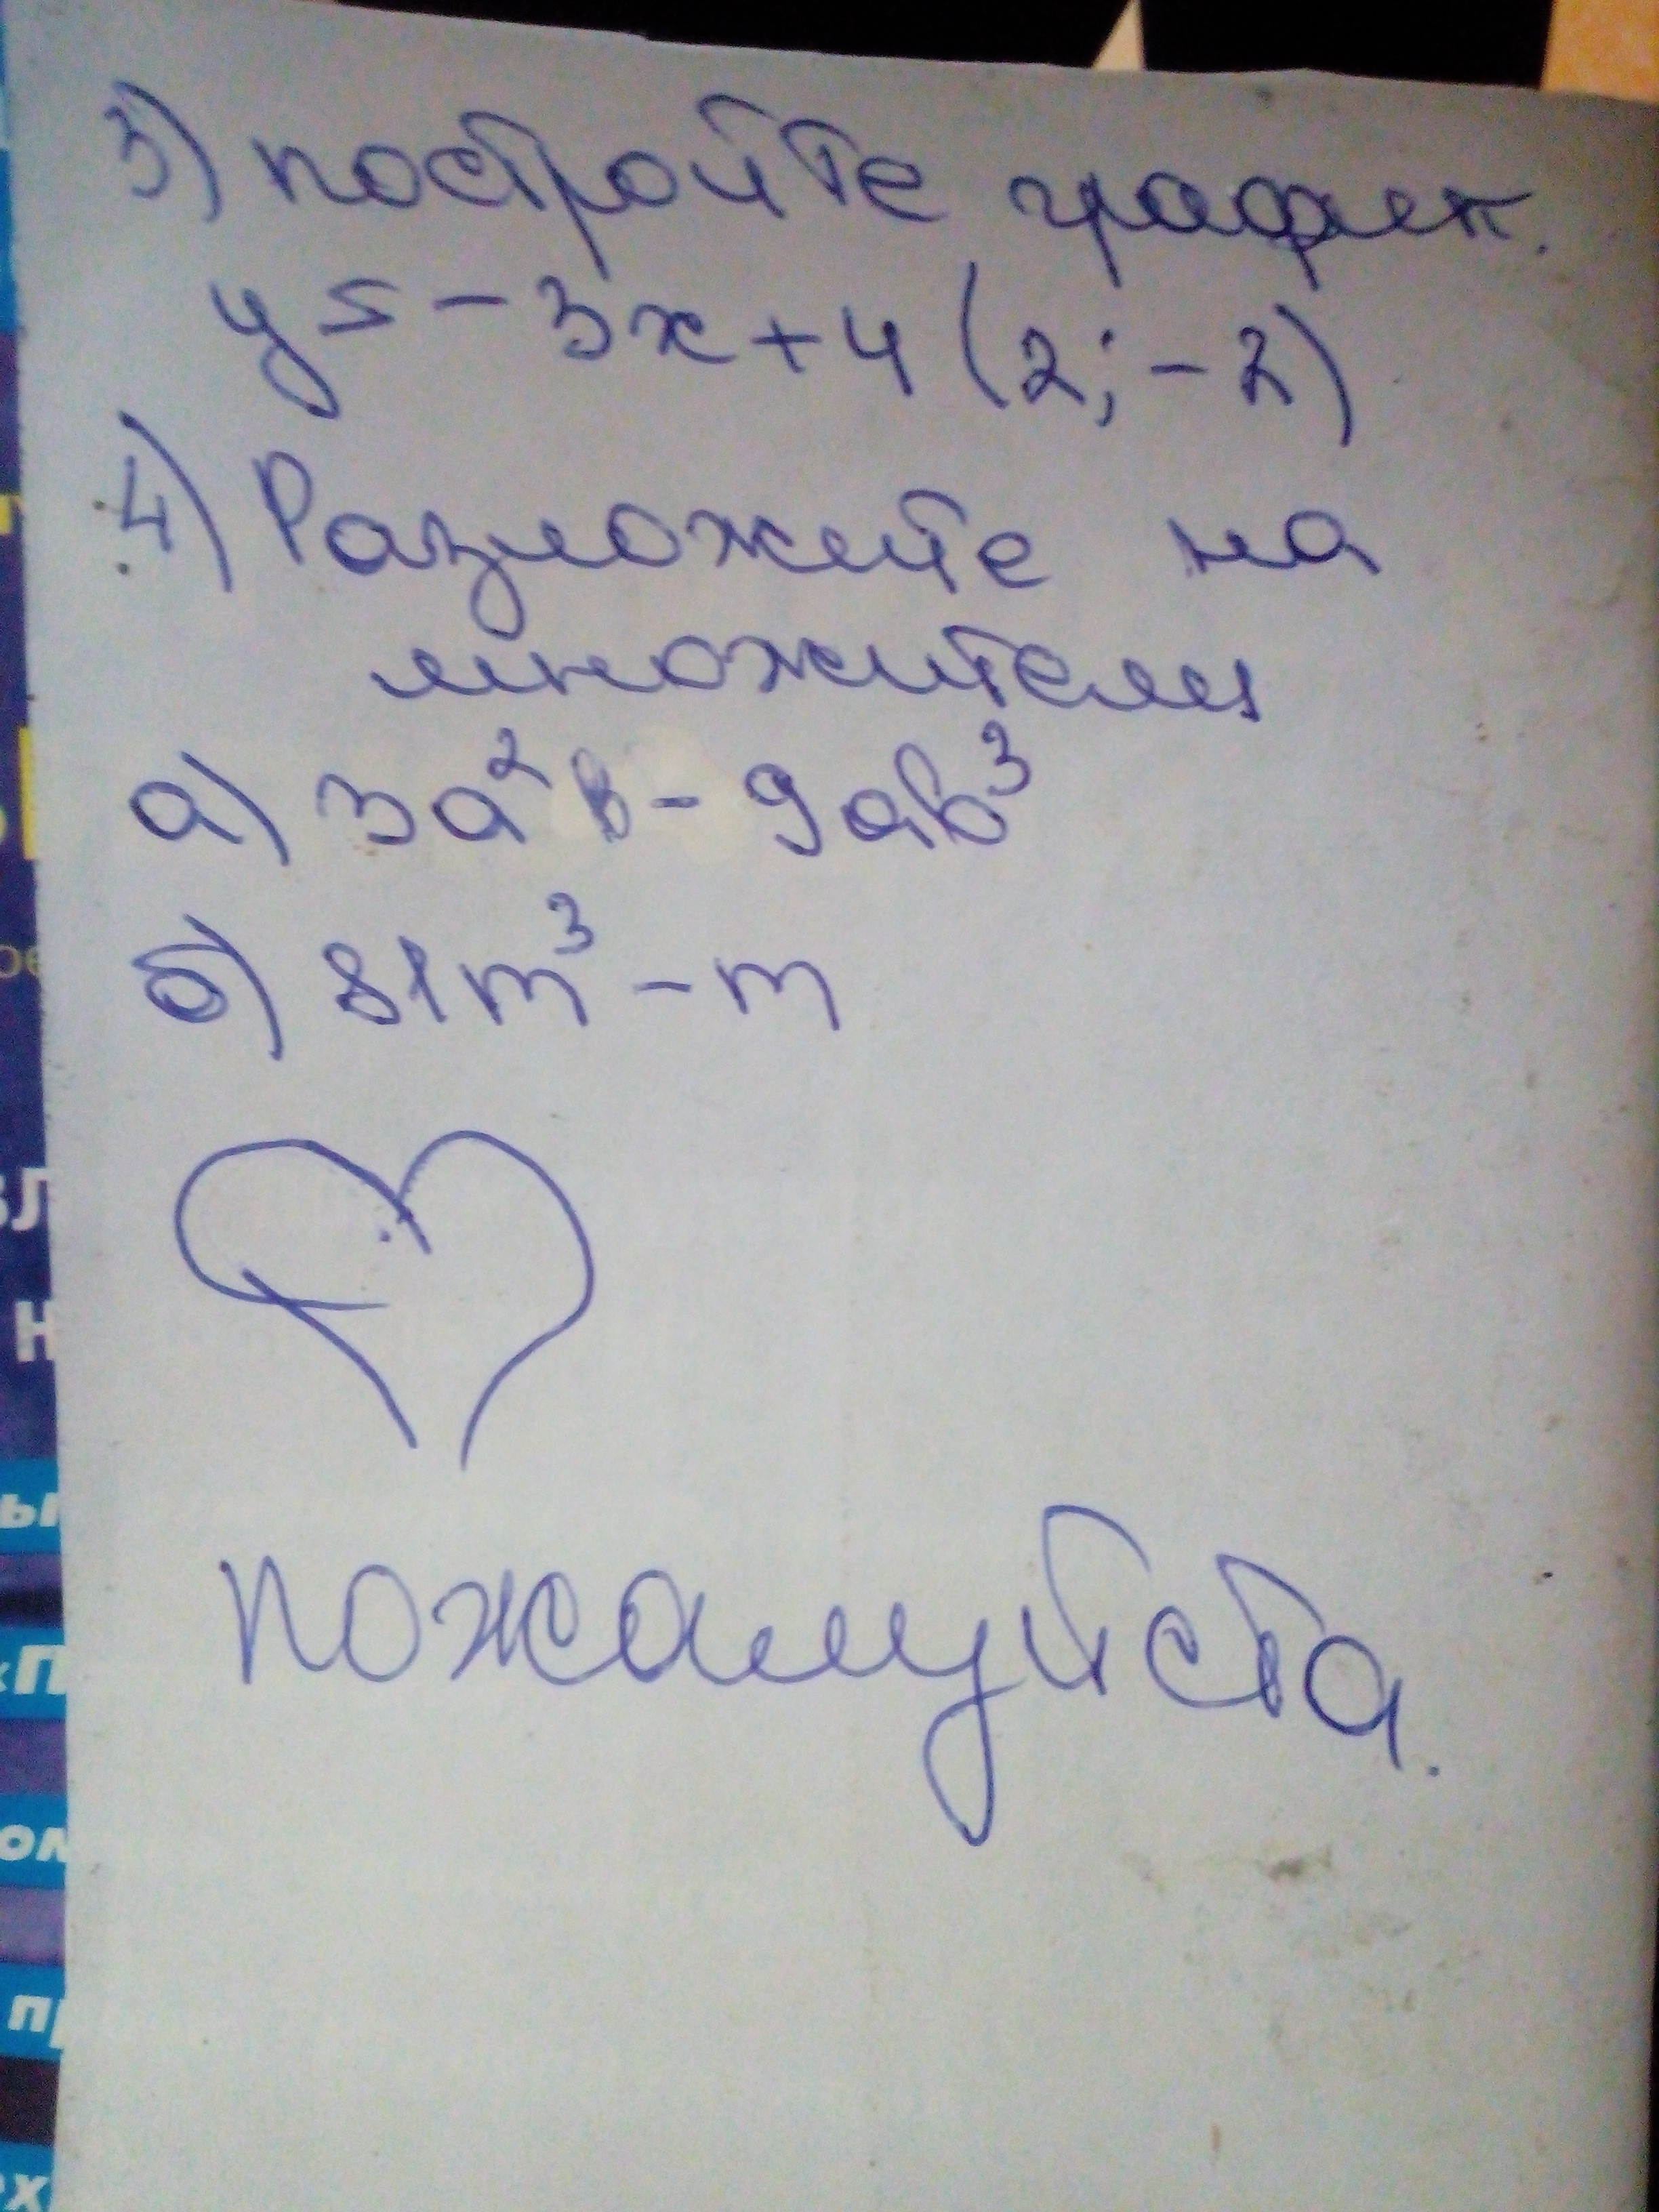 3) постройте график.
y = -3x + 4 (2; -2)
4) Разложите на
множители
а) 3a²b - 9ab³
б) 81m³ - m
пожалуйста.